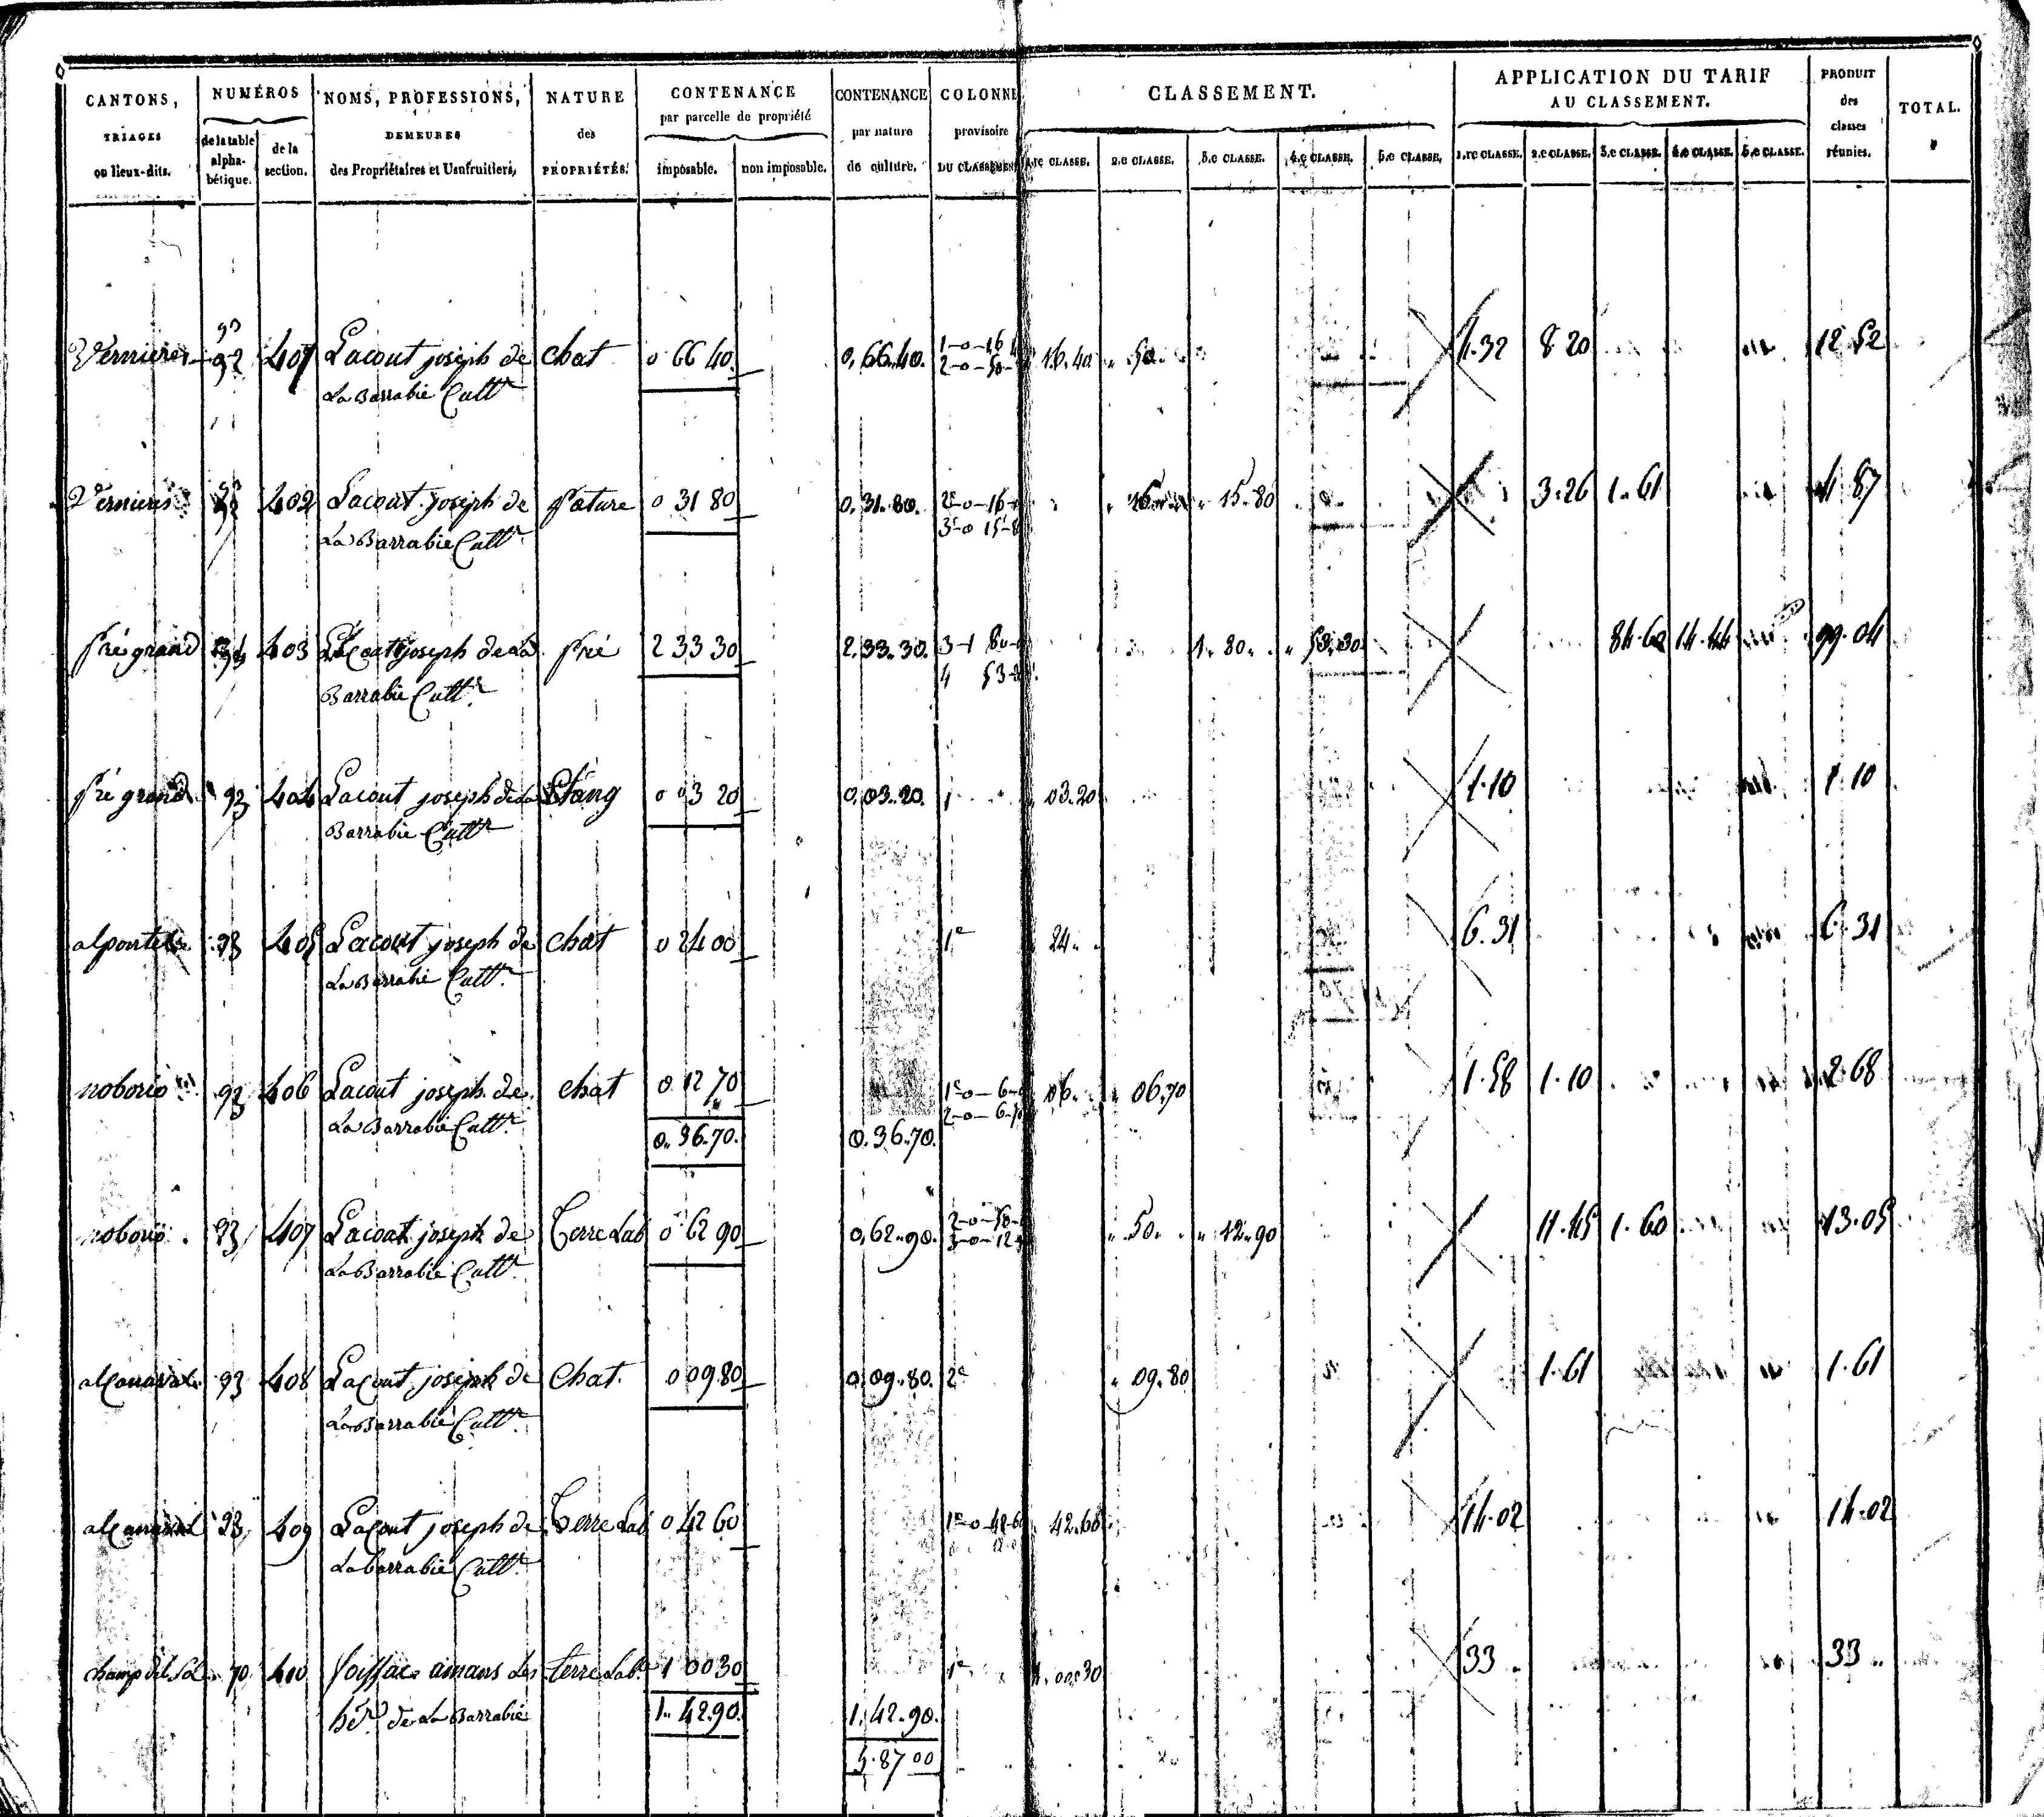 CANTONS, NUMÉROS NOMS, PROFESSIONS, NATURE CONTENANCE CONTENANCE COLONNE CLASSEMENT. APPLICATION DU TARIF PRODUIT TOTAL.
TRIAGES DEMEURES des par parcelle de propriété par nature provisoire AU CLASSEMENT. des classes
ou lieux-dits. de la table alphabétique. de la section. des Propriétaires et Usufruitiers, PROPRIÉTÉS. imposable. non imposable. de culture. DU CLASSEMENT 1.re CLASSE. 2.e CLASSE. 3.e CLASSE. 4.e CLASSE. 5.e CLASSE. 1.re CLASSE. 2.e CLASSE. 3.e CLASSE. 4.e CLASSE. 5.e CLASSE. réunies.
Vernieres 93 401 Lacout joseph de chat 0 66 40 0.66.40. 1-0-16 16.40 50 4.32 8 20 12 52
La Barrabie Cultr 2-0-50
Vernieres 93 402 Lacout joseph de Pature 0 31 80 0.31.80. 2-0-16 16 15.80 3.26 1.61 4 87
La Barrabie Cultr 3-0 15-8
Pré grand 403 Lacout joseph de La Pré 2 33 30 2.33.30. 3-1 80 1.80 53.30 84.60 14.44 99.04
Barrabie Cultr 4 53
Pré grand 93 404 Lacout joseph de La Etang 0 03 20 0.03.20. 1 03.20 1.10 1.10
Barrabie Cultr
93 405 Lacout joseph de chat 0 24 00 1e 24 6.31 6.31
La Barrabie Cultr
noborio 93 406 Lacout joseph de chat 0 12 70 1e-0-6 06 06.70 1.58 1.10 2.68
La Barrabie Cultr 0.36.70. 0.36.70. 2-0-6-70
noborio 93 407 Lacout joseph de Terre Lab 0 62 90 0.62.90. 2-0-50 50 12.90 11.45 1.60 13.05
La Barrabie Cultr 3-0-12
93 408 Lacout joseph de Chat. 0 09 80 0.09.80. 2e 09.80 1.61 1.61
La Barrabie Cultr
93 409 Lacout joseph de Terre Lab 0 42 60 1e-0-42-60 42.60 14.02 14.02
La barrabie Cultr
champ del Sol 70 410 amans Les terre Lab. 1 00 30 1e 1.00.30 33 33
hér. de La Barrabie 1.42.90. 1.42.90.
5.87 00